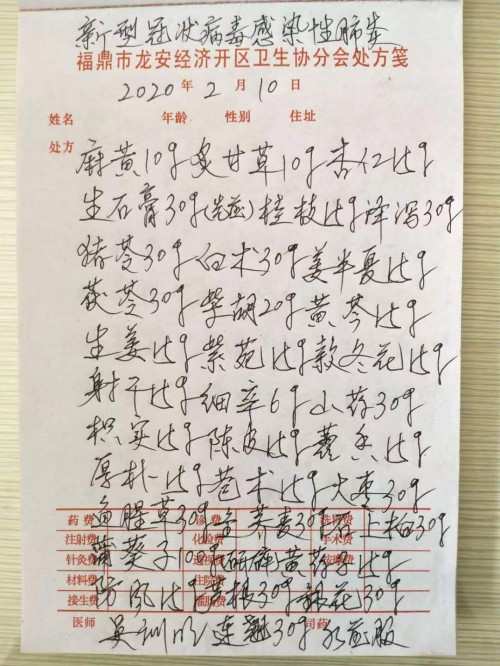 新型冠状病毒感染性肺炎
福鼎市龙安经济开区卫生协分会处方笺
2020年2月10日
姓名 年龄 性别 住址
处方
麻黄10g 炙甘草10g 杏仁15g
生石膏30g(先煎) 桂枝15g 泽泻30g
猪苓30g 白术30g 姜半夏15g
茯苓30g 柴胡20g 黄芩15g
生姜15g 紫菀15g 款冬花15g
射干15g 细辛6g 山药30g
枳实15g 陈皮15g 藿香15g
厚朴15g 苍术15g 大枣30g
鱼腥草30g 金荞麦30g
药费
注射费 化验费 手术费
针灸费
材料费
接生费
防风15g 30g 银花30g
医师 司药
连翘30g 水煎服